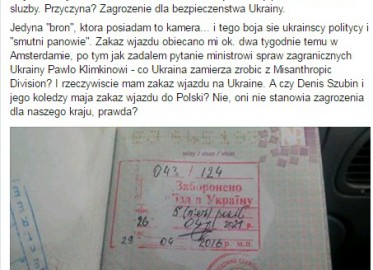 sluzby. Przyczyna? Zagrozenie dla bezpieczenstwa Ukrainy.
Jedyna "bron", ktora posiadam to kamera... i tego boja sie ukrainscy politycy i
"smutni panowie". Zakaz wjazdu obiecano mi ok. dwa tygodnie temu w
Amsterdamie, po tym jak zadalem pytanie ministrowi spraw zagranicznych
Ukrainy Pawlo Klimkinowi - co Ukraina zamierza zrobic z Misanthropic
Division? I rzeczywiscie mam zakaz wjazdu na Ukraine. A czy Denis Szubin i
jego koledzy maja zakaz wjazdu do Polski? Nie, oni nie stanowia zagrozenia
dla naszego kraju, prawda?
043 / 124
Заборонено
в'їзд в Україну
5 (п'ять) років
26 04 2021
29 04 2016